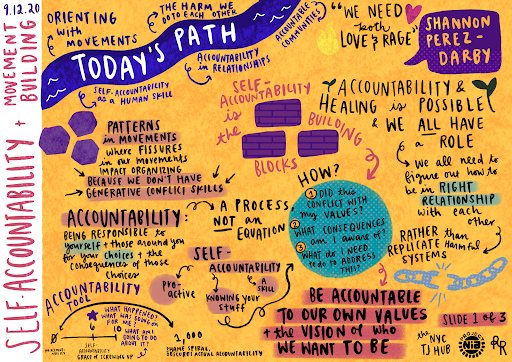 9.12.20
SELF-ACCOUNTABILITY + MOVEMENT
BUILDING
ORIENTING
with
MOVEMENTS
THE HARM WE
DO TO EACH OTHER
ACCOUNTABLE
COMMUNITIES
TODAY'S PATH
SELF-ACCOUNTABILITY
as a HUMAN SKILL
ACCOUNTABILITY
in RELATIONSHIPS
"WE NEED
both
LOVE & RAGE"
SHANNON
PEREZ-
DARBY
PATTERNS
in MOVEMENTS
where FISSURES
in our movements
IMPACT ORGANIZING
→ BECAUSE WE DON'T HAVE
→ GENERATIVE CONFLICT SKILLS
SELF-
ACCOUNTABILITY
is
the
BUILDING
BLOCKS
ACCOUNTABILITY &
HEALING is POSSIBLE
& WE ALL HAVE
a ROLE
→ we all need to
figure out how to
be in RIGHT
RELATIONSHIP
with each
other
RATHER than
REPLICATE Harmful
SYSTEMS
ACCOUNTABILITY:
BEING RESPONSIBLE to
yourself + those around you
for your choices + the
consequences of those
choices
A PROCESS,
NOT an
EQUATION
HOW?
1 DID this
CONFLICT WITH
my VALUES?
2 WHAT CONSEQUENCES
am I aware of?
3 WHAT do I NEED
to do to ADDRESS
THIS?
SELF-
ACCOUNTABILITY
PRO-
ACTIVE
a
SKILL
KNOWING your
STUFF
ACCOUNTABILITY
TOOL
WHAT HAPPENED?
WHAT WAS GOING ON
FOR ME?
WHAT AM I
GOING TO DO
ABOUT IT?
0
6
10
1,000
SELF-
ACCOUNTABILITY
GRACE in SCREWING UP
SHAME SPIRAL,
OBSCURES ACTUAL ACCOUNTABILITY
BE ACCOUNTABLE
TO OUR OWN VALUES
+ the VISION of WHO
WE WANT TO BE
SLIDE 1 of 3
the NYC
TJ HUB
RR